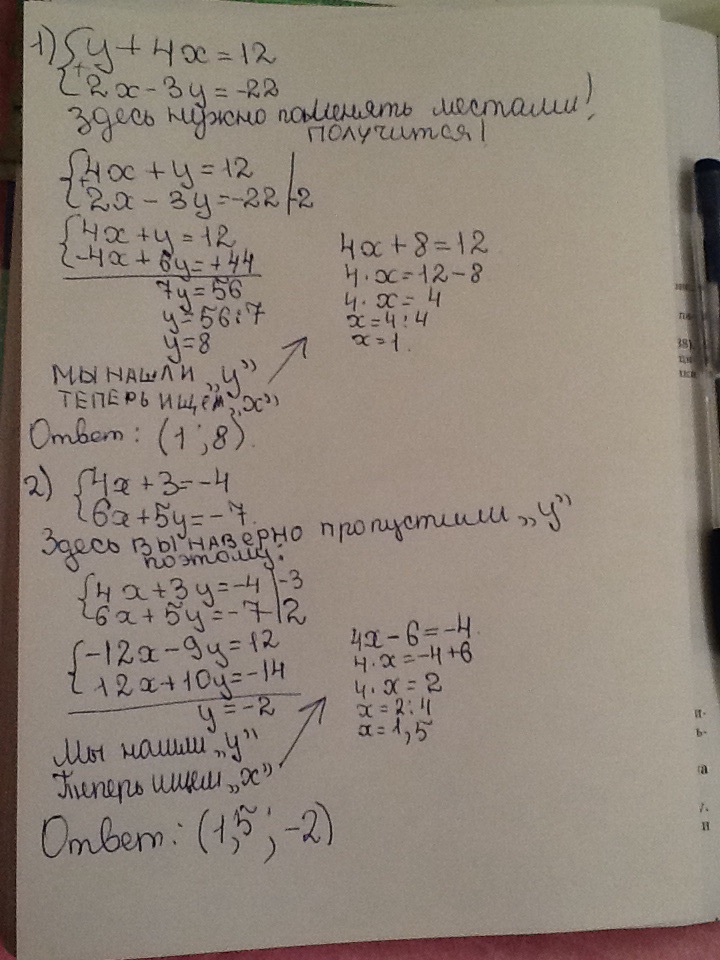 1) { y + 4x = 12
{ 2x - 3y = -22
Здесь нужно поменять местами!
получится!
{ 4x + y = 12
{ 2x - 3y = -22 |-2
{ 4x + y = 12
-4x + 6y = +44
7y = 56
y = 56 : 7
y = 8
4x + 8 = 12
4·x = 12 - 8
4·x = 4
x = 4 : 4
x = 1.
Мы нашли „y”
теперь ищем „x”
Ответ: (1 ; 8).
2) { 4x + 3 = -4
{ 6x + 5y = -7.
Здесь вы наверно пропустили „y”
поэтому:
{ 4x + 3y = -4 |-3
{ 6x + 5y = -7 | 2
{ -12x - 9y = 12
12x + 10y = -14
y = -2
4x - 6 = -4.
4·x = -4 + 6
4·x = 2
x = 2 : 4
x = 1,5
Мы нашли „y”
Теперь ищем „x”
Ответ: (1,5 ; -2)